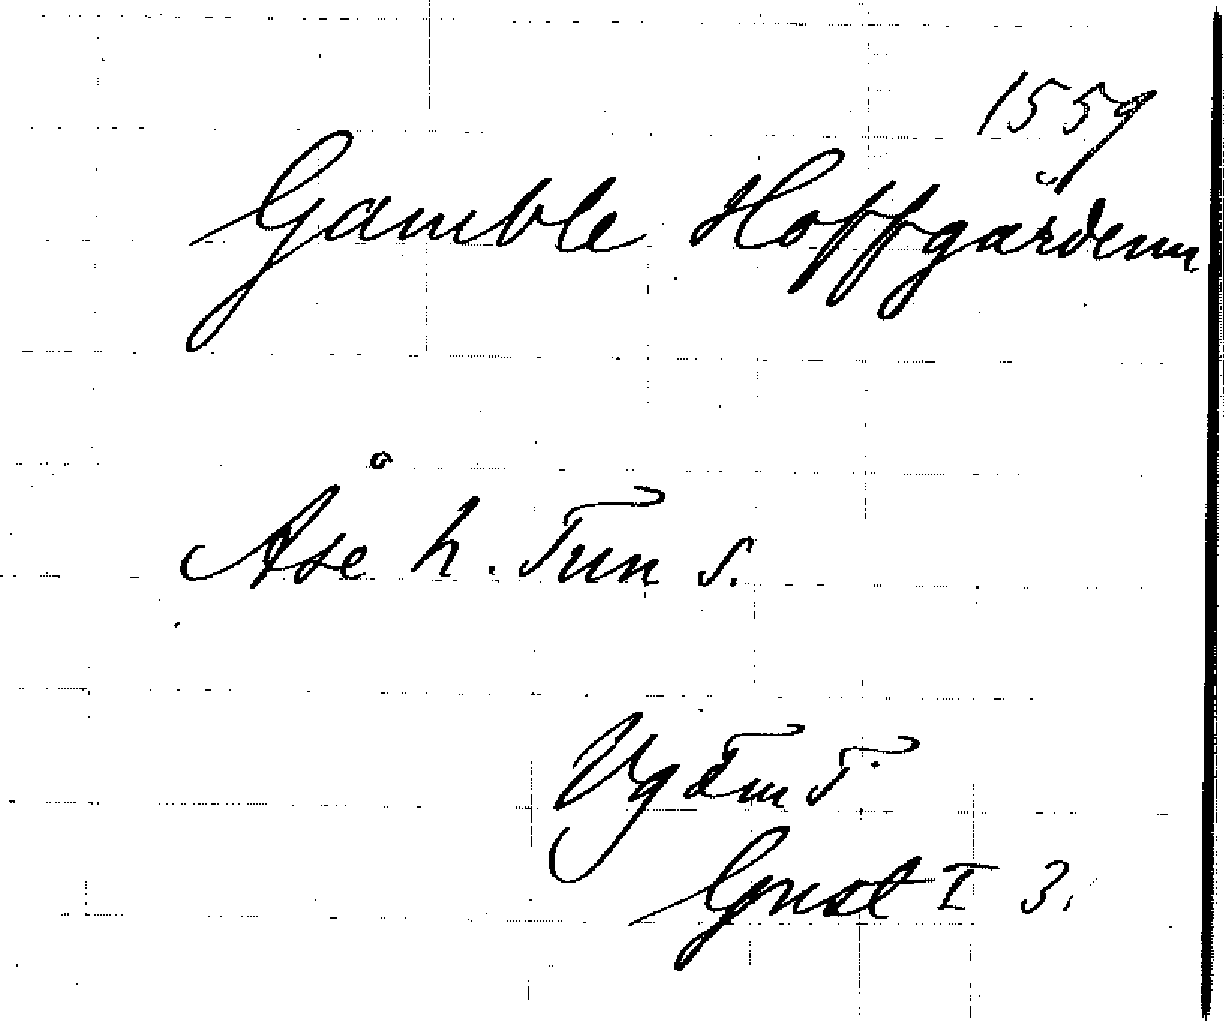 1559
Gamble Hoffgårdenn
Åse h. Tun s.
Vg Tun T.
Gust I 3.